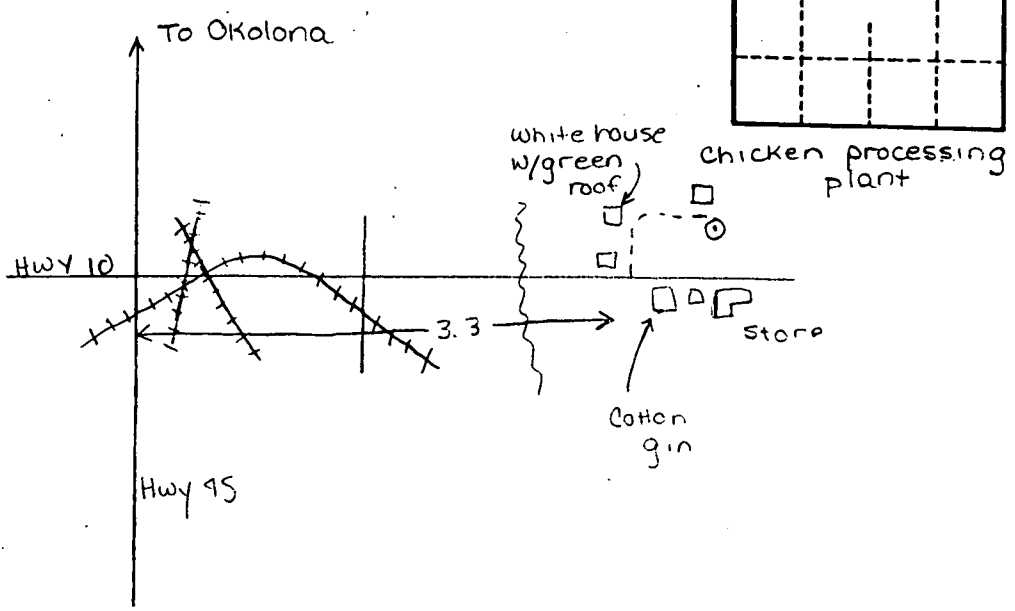 To Okolona
white house
w/green
roof
chicken processing
plant
HWY 10
3.3
store
Cotton
gin
Hwy 45